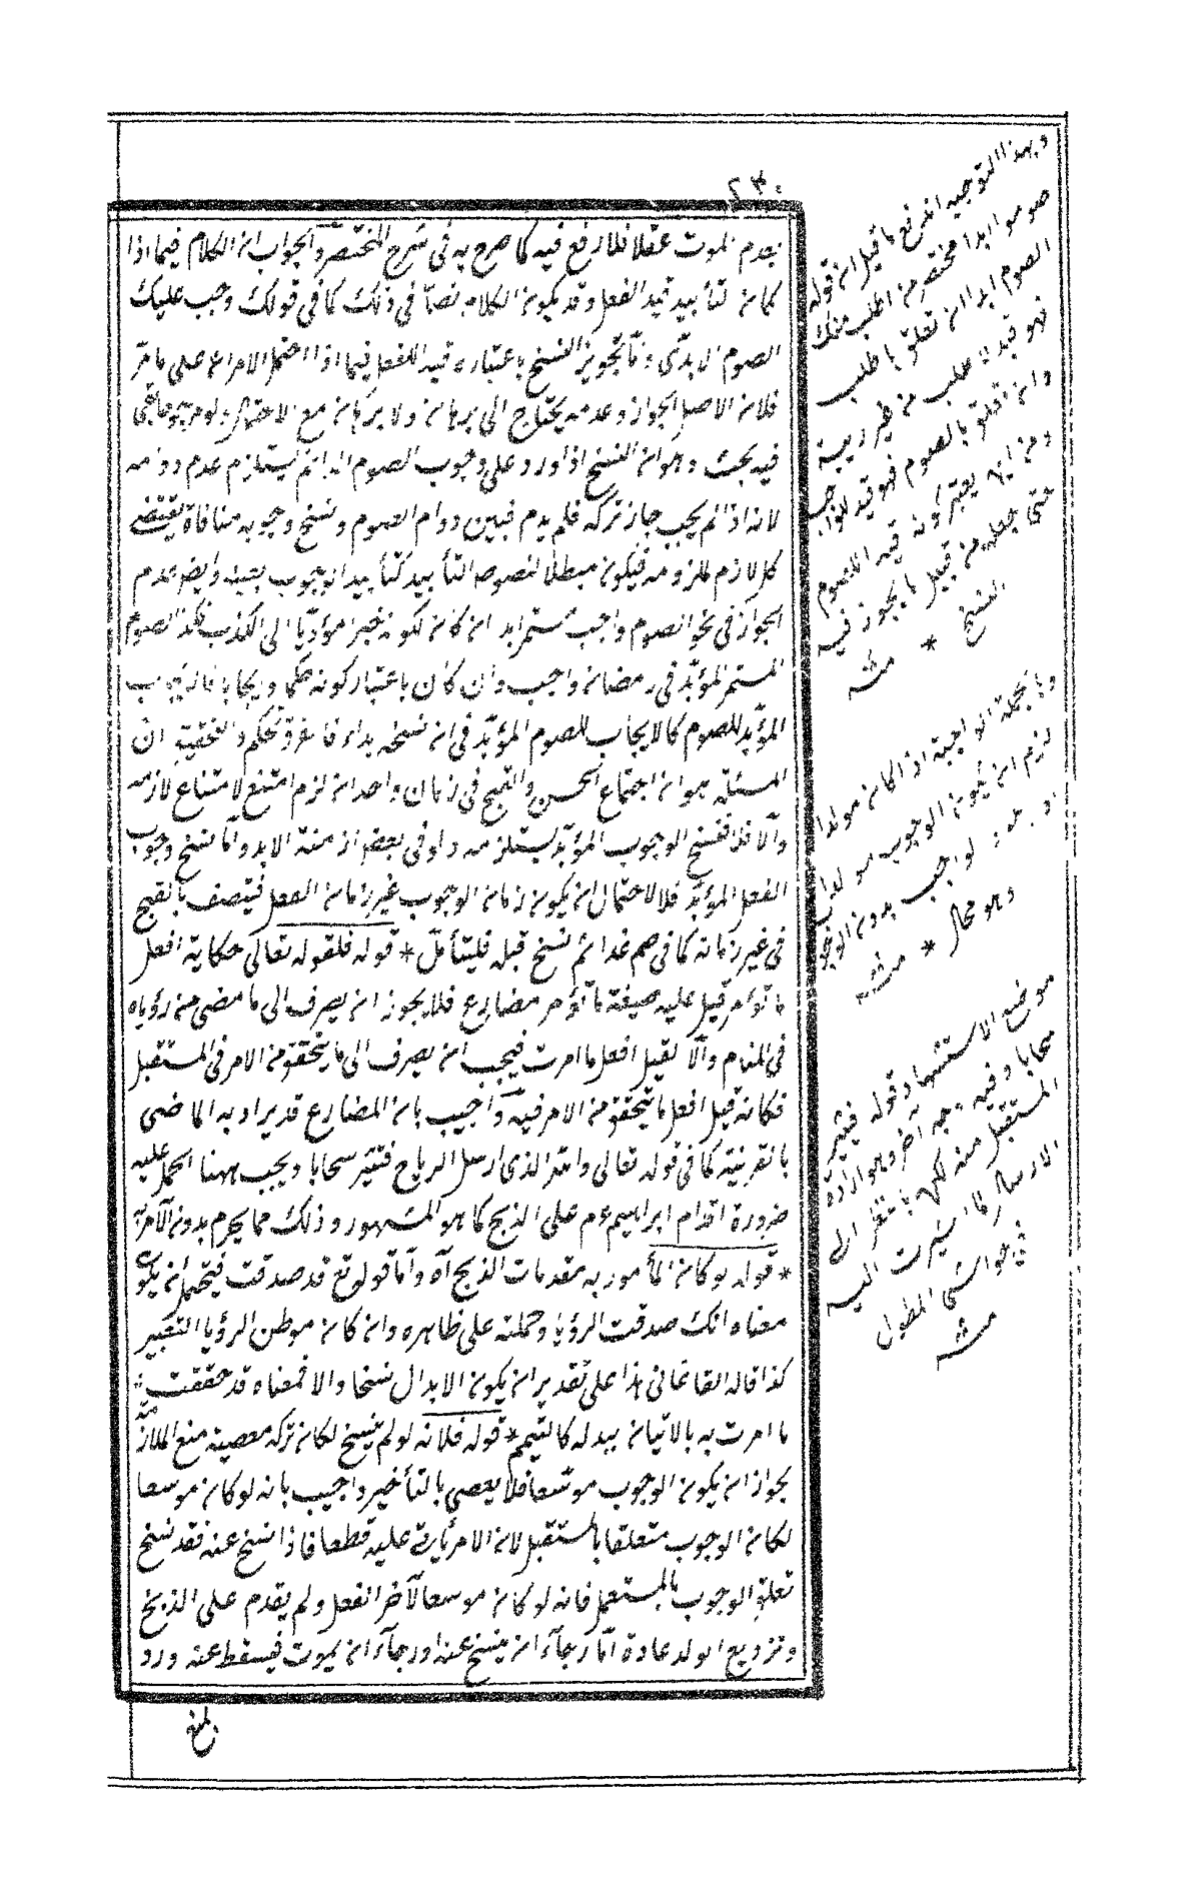 ٢٣٠
بعدم الموت عقلا فلا رفع فيه كما صرح به فى شرح المختصر والجواب ان الكلام فيما اذا
كان التأبيد قيد الفعل وقد يكون الكلام نصا فى ذلك كما فى قولك وجب عليك
الصوم الابدى وتجويز النسخ باعتباره قيد الفعل فيما اذا احتمل الامران على ما مر
فلان الاصل الجواز وعدمه يحتاج الى برهان ولا برهان مع الاحتمال
فيه بحث وهو ان النسخ اذا ورد على وجوب الصوم الدائم يستلزم عدم دوامه
لانه اذا لم يجب جاز تركه فلم يدم فبين دوام الصوم ونسخ وجوبه منافاة يقتضى
كل لازم ملزومه فيكون مبطلا لنصوصه التأبيد كتأبيد الوجوب بعينه وايضا عدم
الجواز فى نحو الصوم واجب مستمر ابدا ان كان لكونه خبرا مؤديا الى الكذب فكذا الصوم
المستمر المؤبد فى رمضان واجب وان كان باعتبار كونه حكما وايجابا فالايجاب
المؤبد للصوم كالايجاب للصوم المؤبد فى ان نسخه بداء فالفرق تحكم والتحقيق ان
المسئلة هو ان اجتماع الحسن والقبح فى زمان واحد ان لزم امتنع لامتناع لازمه
والا فلا فنسخ الوجوب المؤبد يستلزمه ولو فى بعض ازمنة الابد واما نسخ وجوب
الفعل المؤبد فلا لاحتمال ان يكون زمان الوجوب غير زمان الفعل فيتصف بالقبح
فى غير زمانه كما فى صم غدا ثم نسخ قبله فليتأمل * قوله فلقوله تعالى حكاية افعل
ما تؤمر قيل عليه صيغة ما تؤمر مضارع فلا يجوز ان يصرف الى ما مضى من رؤياه
فى المنام والا لقيل افعل ما امرت فيجب ان يصرف الى ما يتحقق من الامر فى المستقبل
فكانه قيل افعل ما يتحقق من الامر فيه واجيب بان المضارع قد يراد به الماضى
بالقرينة كما فى قوله تعالى والله الذى ارسل الرياح فتثير سحابا ويجب ههنا الحمل عليه
ضرورة اقدام ابراهيم عم على الذبح كما هو المشهور وذلك مما يحرم بدون الامر به
* قوله لو كان المأمور به مقدمات الذبح آه واما قوله تع قد صدقت فيحتمل ان يكون
معناه انك صدقت الرؤيا وحملته على ظاهره وان كان موطن الرؤيا التعبير
كذا قاله القاغانى هذا على تقدير ان يكون الابدال نسخا والا فمعناه قد حققت
ما امرت به بالاتيان ببدله كالتيمم * قوله فلانه لو لم ينسخ لكان تركه معصية منع الملازمة
بجواز ان يكون الوجوب موسعا فلا يعصى بالتأخير واجيب بانه لو كان موسعا
لكان الوجوب متعلقا بالمستقبل لان الامر باق عليه قطعا فاذا نسخ عنه فقد نسخ
تعلق الوجوب بالمستقبل فانه لو كان موسعا لآخر الفعل ولم يقدم على الذبح
وترويع الولد عادة اما رجاء ان ينسخ عنه او رجاء ان يموت فيسقط عنه ورد
وبهذا التوجيه اندفع ما قيل ان قوله
صوموا ابدا مختصر من اطلب منك
الصوم ابدا ان تعلق باطلب
فهو قيد للطلب من غير ريبة
وان تعلق بالصوم فهو قيد للواجب
ومن اين يعتبر كونه قيد للصوم
حتى جعله من قبيل ما يجوز فيه
النسخ * منه
وبالجملة الواجبة اذا كان مؤبدا
لزم ان يكون الوجوب مؤبدا
الواجب بدون الوجوب
وهو محال * منه
موضع الاستشهاد قوله فتثير
سحابا وفيه وجه آخر وهو ارادة
المستقبل منه لكن بالنظر الى
الارسال كما اشيرت اليه
فى حواشى المطول
منه